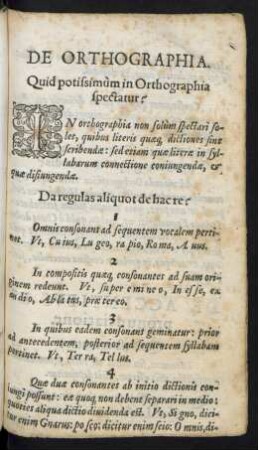 DE ORTHOGRAPHIA.
Quid potissimùm in Orthographia
spectatur?
IN orthographia non solùm spectari so-
let, quibus literis quæq; dictiones sint
scribendæ: sed etiam quæ literæ in syl-
labarum connectione coniungendæ, &
quæ disiungendæ.
Da regulas aliquot de hac re?
1
Omnis consonant ad sequentem vocalem perti-
net. Vt, Cu ius, Lu geo, ra pio, Ro ma, A uus.
2
In compositis quæq; consonantes ad suam ori-
ginem redeunt. Vt, super e mi ne o, In es se, ex
au di o, Ab la tus, præ ter eo.
3
In quibus eadem consonant geminatur: prior
ad antecedentem, posterior ad sequentem syllabam
pertinet. Vt, Ter ra, Tel lus.
4
Quæ duæ consonantes ab initio dictionis con-
iungi possunt: eæ quoq; non debent separari in medio:
quoties aliqua dictio diuidenda est. Vt, Si gno, dici-
tur enim Gnarus: po sco: dicitur enim scio: O mnis, di-